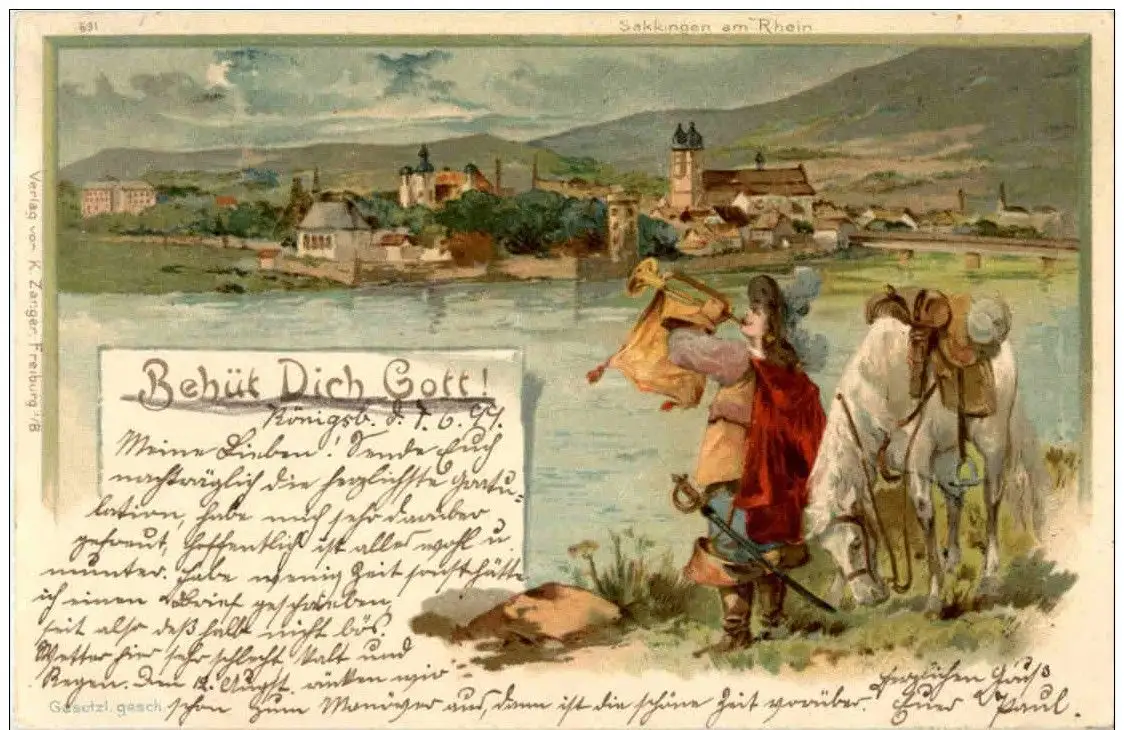 691
Säkkingen am Rhein
Verlag von K. Zanger, Freiburg i/B
Behüt Dich Gott!
Königsb. d. 7. 6. 99.
Meine Lieben! Sende Euch
nachträglich die herzlichste Gratu-
lation, habe mich sehr darüber
gefreut, hoffentlich ist alles wohl u.
munter. Habe wenig Zeit sonst hätte
ich einen Brief geschrieben,
seit also deßhalb nicht bös.
Wetter hier sehr schlecht kalt und
Regen. Den 12. August rücken wir
schon zum Manöver aus, dann ist die schöne Zeit vorüber.
Herzlichen Gruß
Euer Paul.
Gesetzl. gesch.